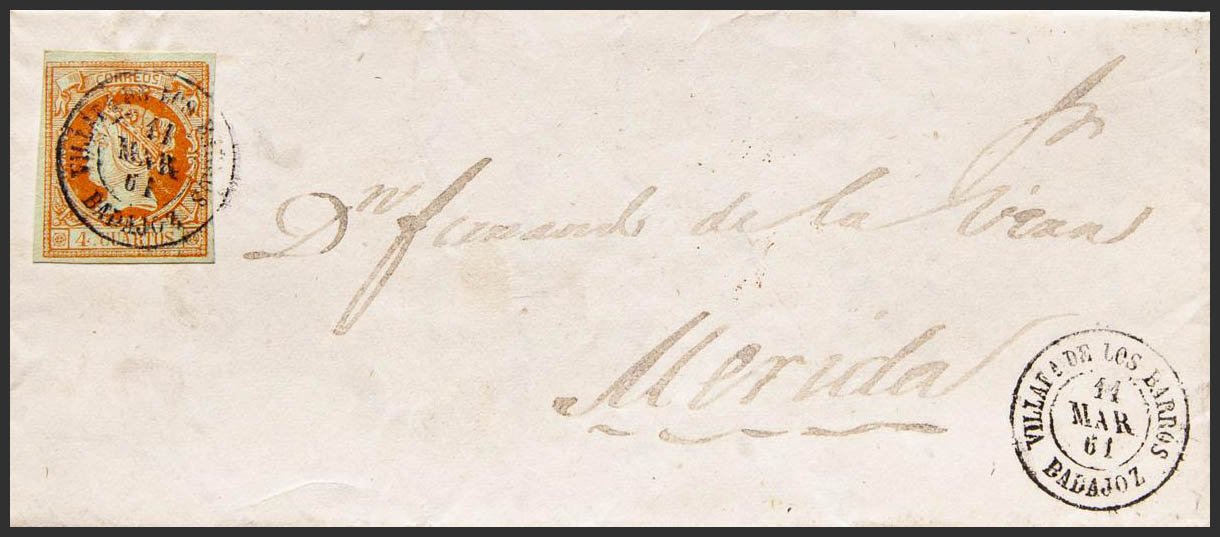 CORREOS
VILLAFA DE LOS BARROS
11
MAR
61
BADAJOZ
4 CUARTOS
Sr
Dn Fernando de la Vera
Merida
VILLAFA DE LOS BARROS
11
MAR
61
BADAJOZ